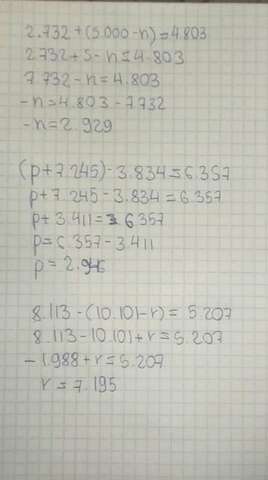 2.732+(5.000-n)=4.803
2.732+5-n=4.803
7.732-n=4.803
-n=4.803-7.732
-n=2.929
(p+7.245)-3.834=6.357
p+7.245-3.834=6.357
p+3.411=6.357
p=6.357-3.411
p=2.946
8.113-(10.101-r)=5.207
8.113-10.101+r=5.207
-1.988+r=5.207
r=7.195